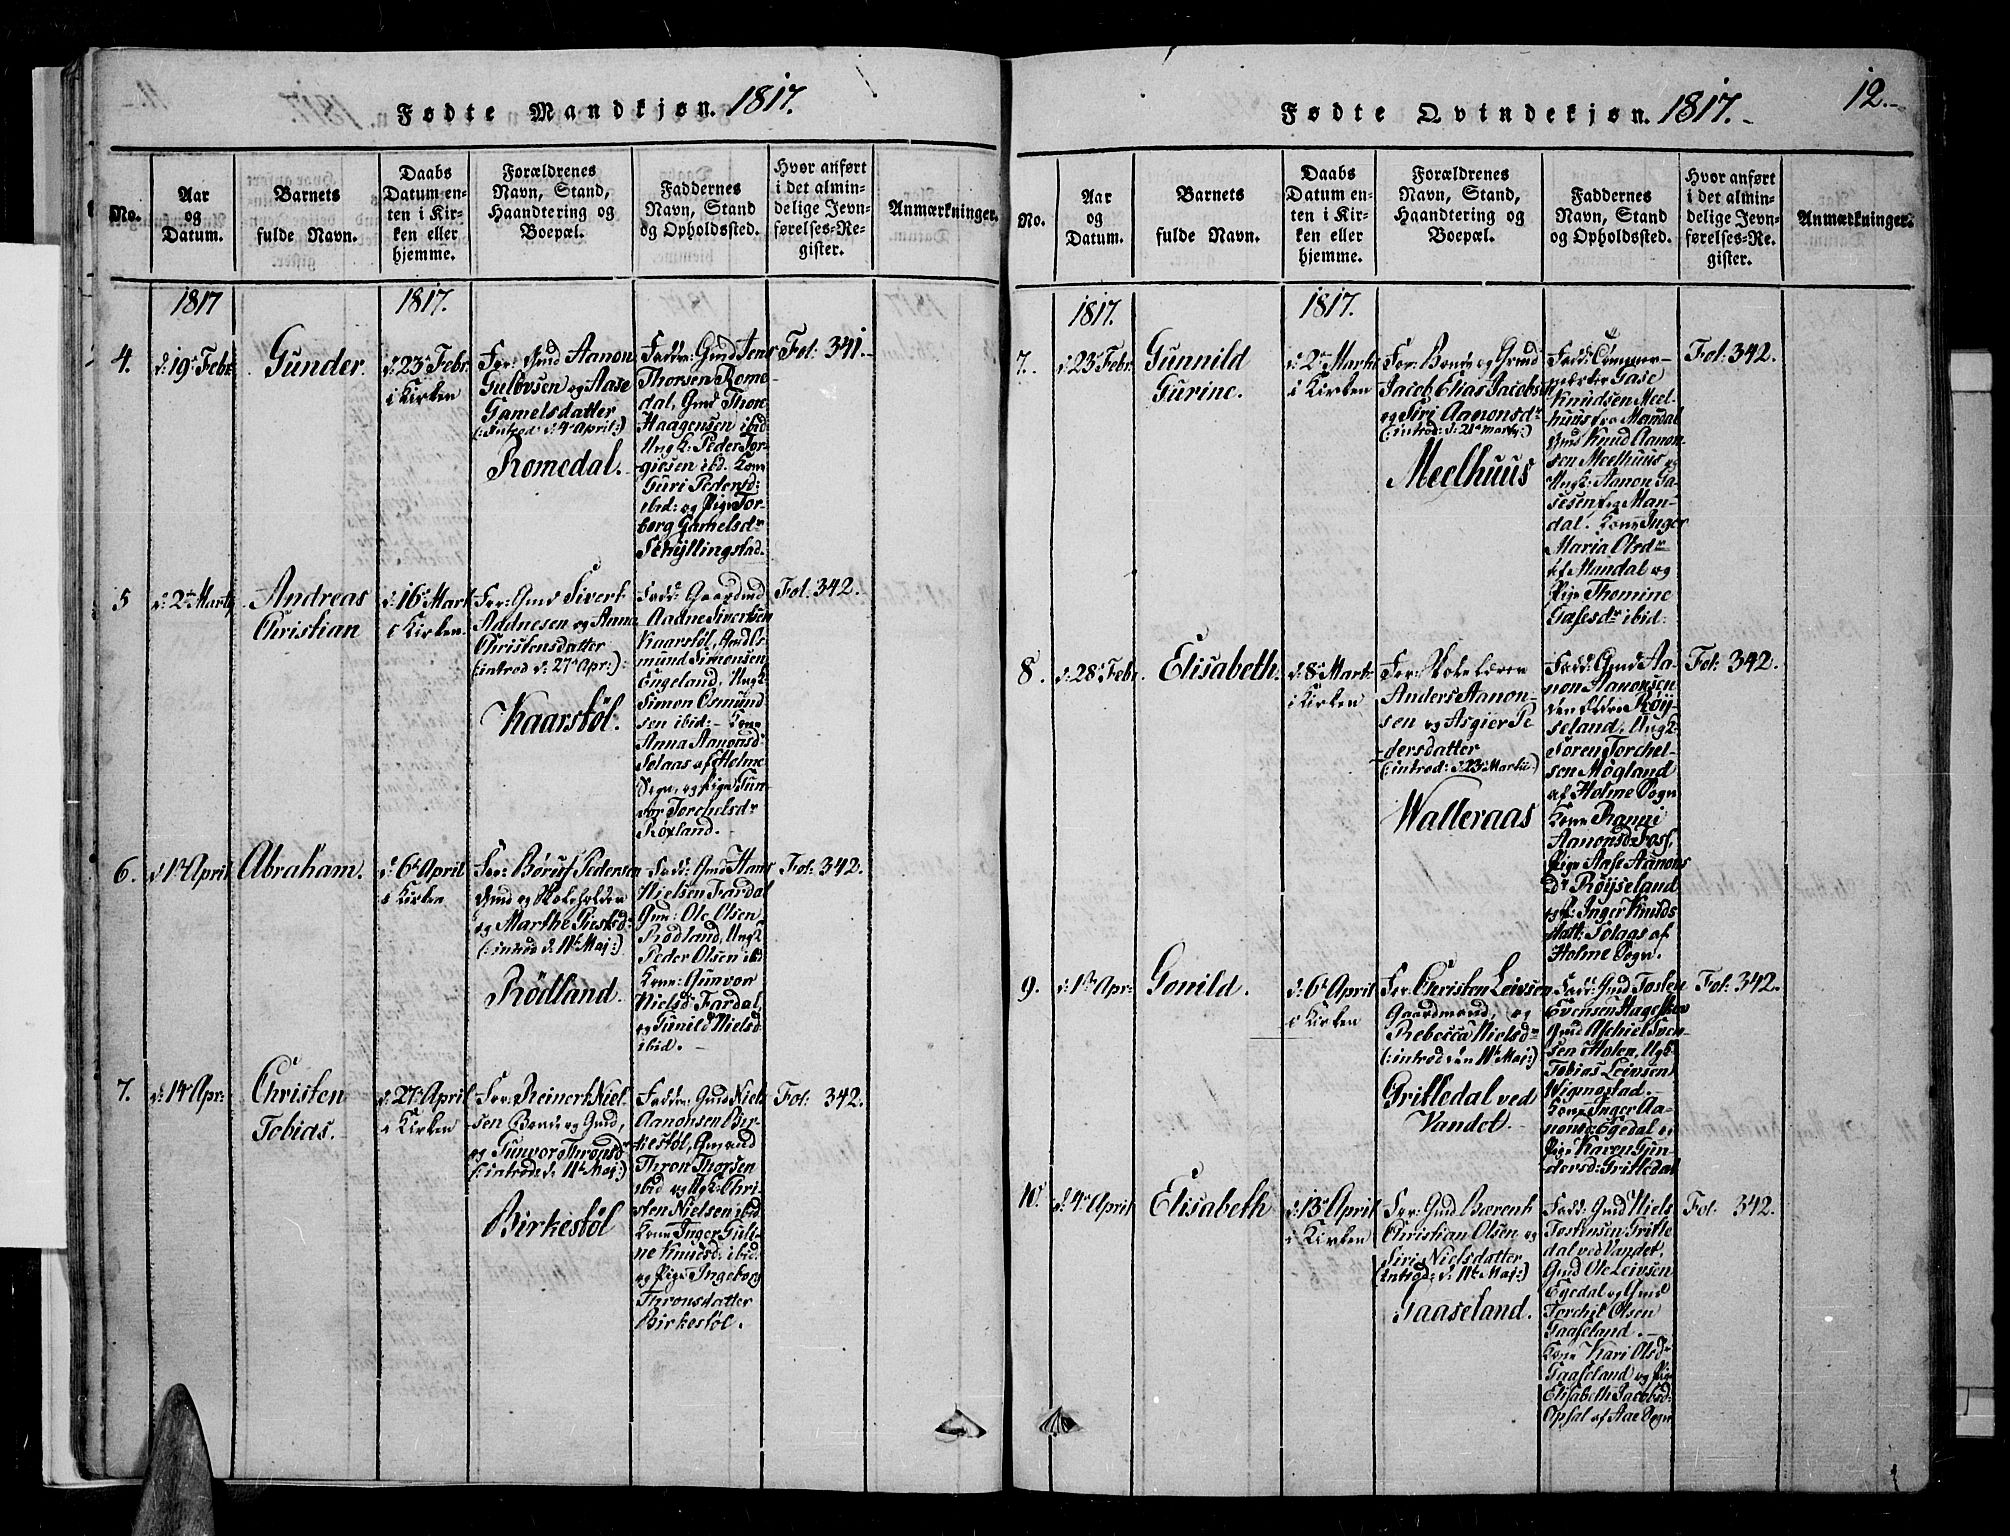 Fødte Mandkjøn. 1817.
No.
Aar
og
Datum.
Barnets
fulde Navn.
Daabs
Datum en-
ten i Kir-
ken eller
hjemme.
Forældrenes
Navn, Stand,
Haandtering og
Boepæl.
Faddernes
Navn, Stand
og Opholdssted.
Hvor anført
i det almin-
delige Jevn-
førelses-Re-
gister.
Anmærkninger.
1817
1817.
4.
d: 19de Febr
Gunder.
d: 23de Febr.
i Kirken
For: Gmd Aanon
Gulovsen og Aase
Gamelsdatter
(: introd: d: 4de April:)
Romedal.
Faddr: Gmd Jens
Thorsen Rome-
dal, Gmd Thon
Haagensen ibid
Ungk: Peder Tor-
giesen ibd. Kone
Guri Pedersd:
ibid: og Pige Tor-
borg Gamelsdr
Schyllingstad.
Fol: 341.
5
d: 2den Marty
Andreas
Christian
d: 16de Mart
i Kirken.
For: Gmd Sivert
Aadnesen og Anna
Christensdatter
(: introd d: 27de Apr:)
Kaarstøl.
Fadd: Gaardmd
Aadne Sivertsen
Kaarstøl, Gmd Os-
mund Simonsen
Engeland, Ungk:
Simon Osmund
sen ibid:- Kone
Anna Aanonsd:
Solaas af Holme
Sogn, og Pige Gun
vor Torchelsdr
Røxland.
Fol: 342.
6.
d 1ste April
Abraham.
d: 6te April
i Kirken
For: Børuf Pedersen
Gmd og Skoleholder
og Marthe Giestsd:
(: introd d. 11te Maj:)
Rødland.
Fadd: Gmd Hans
Nielsen Fardal
Gm: Ole Olsen
Rødland, Ungk:
Peder Olsen ibid
Kone: Gunvor
Nielsd: Fardal,
og Gunild Nielsd:
ibid.
Fol: 342.
7.
d: 14de Apr:
Christen
Tobias.
d: 27de April
i Kirken
For: Reinert Niel-
sen Bonde og Gmd,
og Gunvor Thronsdr
(: introd d. 11te Maj:)
Birkestøl
Faddr: Gmd Niels
Aanonsen Bir-
kestøl, Gmand
Thron Thorsen
ibid og Ugk: Chri-
sten Nielsen ibid
Kone Inger Guli-
ne Knudsd: ibid
og Pige Ingeborg
Thronsdatter
Birkestøl.
Fol: 342.
Fødte Qvindekjøn. 1817.
12.
No.
Aar
og
Datum.
Barnets
fulde Navn.
Daabs
Datum en-
ten i Kir-
ken eller
hjemme.
Forældrenes
Navn, Stand,
Haandtering og
Boepæl.
Faddernes
Navn, Stand
og Opholdssted.
Hvor anført
i det almin-
delige Jevn-
førelses-Re-
gister.
Anmærkninger.
1817.
1817.
7.
d: 23de Febr.
Gunnild
Gurine.
d: 2den Martii
i Kirken
For: Bonde og Gmd
Jacob Elias Jacobsen
og Siri Aanonsdr
(: introd: d: 21de Marty:)
Meelhuus
Fadd: Commer-
Gase
Knudsen Meel-
huus fra Mandal
Knud Aanon-
sen Meelhuus og
Ungk: Aanon Ga-
sesen fra Man-
dal. Kone Inger
Maria Olsdr
af Mandal og
Pige Thomine
Gasesdr ibid:
Fol: 342.
8.
d: 28de Febr.
Elisabeth.
d: 8de Mart:
i Kirken
For: Skolelærer
Anders Aanon-
sen og Asgier Pe
dersdatter
(: introd: d: 23de Martii:)
Walleraas
Fadd: Gmd Aa-
non Aanonsen
den Eldre Røij-
seland, Ungk:
Søren Torchel-
sen Møgland
af Holme Sogn
Kone Ranni
Aanonsd: Foss,
Pige Aase Aanons
dr Røyseland
og P: Inger Knuds
datt: Solaas af
Holme Sogn.
Fol: 342.
9.
d: 1ste Apr:
Gonild.
d: 6te April
i Kirken
For: Christen Leivsen
Gaardmand, og
Rebecca Nielsdr
(: introd den 11te Maj:)
Gritledal ved
Vandet.
Fadd: Gmd Tosten
Evensen Hageskov
Gmd Aschiel Sven-
sen Holen, Ugk:
Tobias Leivsen
Wignestad.
Kone Inger Aa-
nonsd: Egedal og
Pige Karen Gun
dersd: Gritledal
Fol: 342.
10.
d: 4de April
Elisabeth
d: 13de April
i Kirken
For: Gmd Bærent
Christian Olsen og
Siri Nielsdatter
(introd: d. 11te Maj:)
Gaaseland.
Fadd: Gmd Niels
Tostensen Gritle
dal ved Vandet,
Gmd Ole Leivsen
Egedal og Gmd
Torchil Olsen
Gaaseland.
Kone Kari Olsdr
Gaaseland og Pige
Elisabeth Jacobsd:
Opsal af Aae Sogn
Fol: 342.